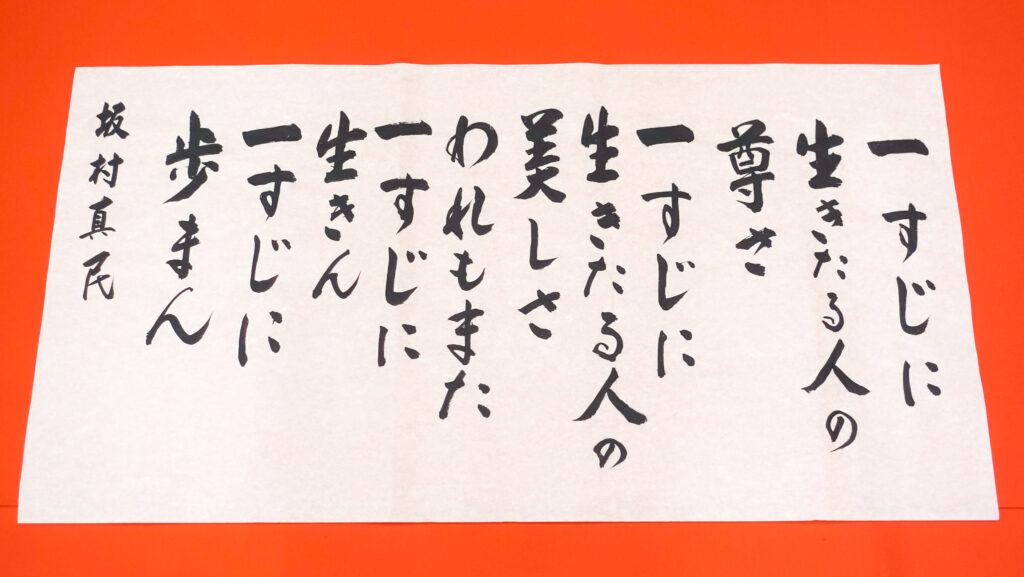 一すじに
生きたる人の
尊さ
一すじに
生きたる人の
美しさ
われもまた
一すじに
生きん
一すじに
歩まん
坂村真民